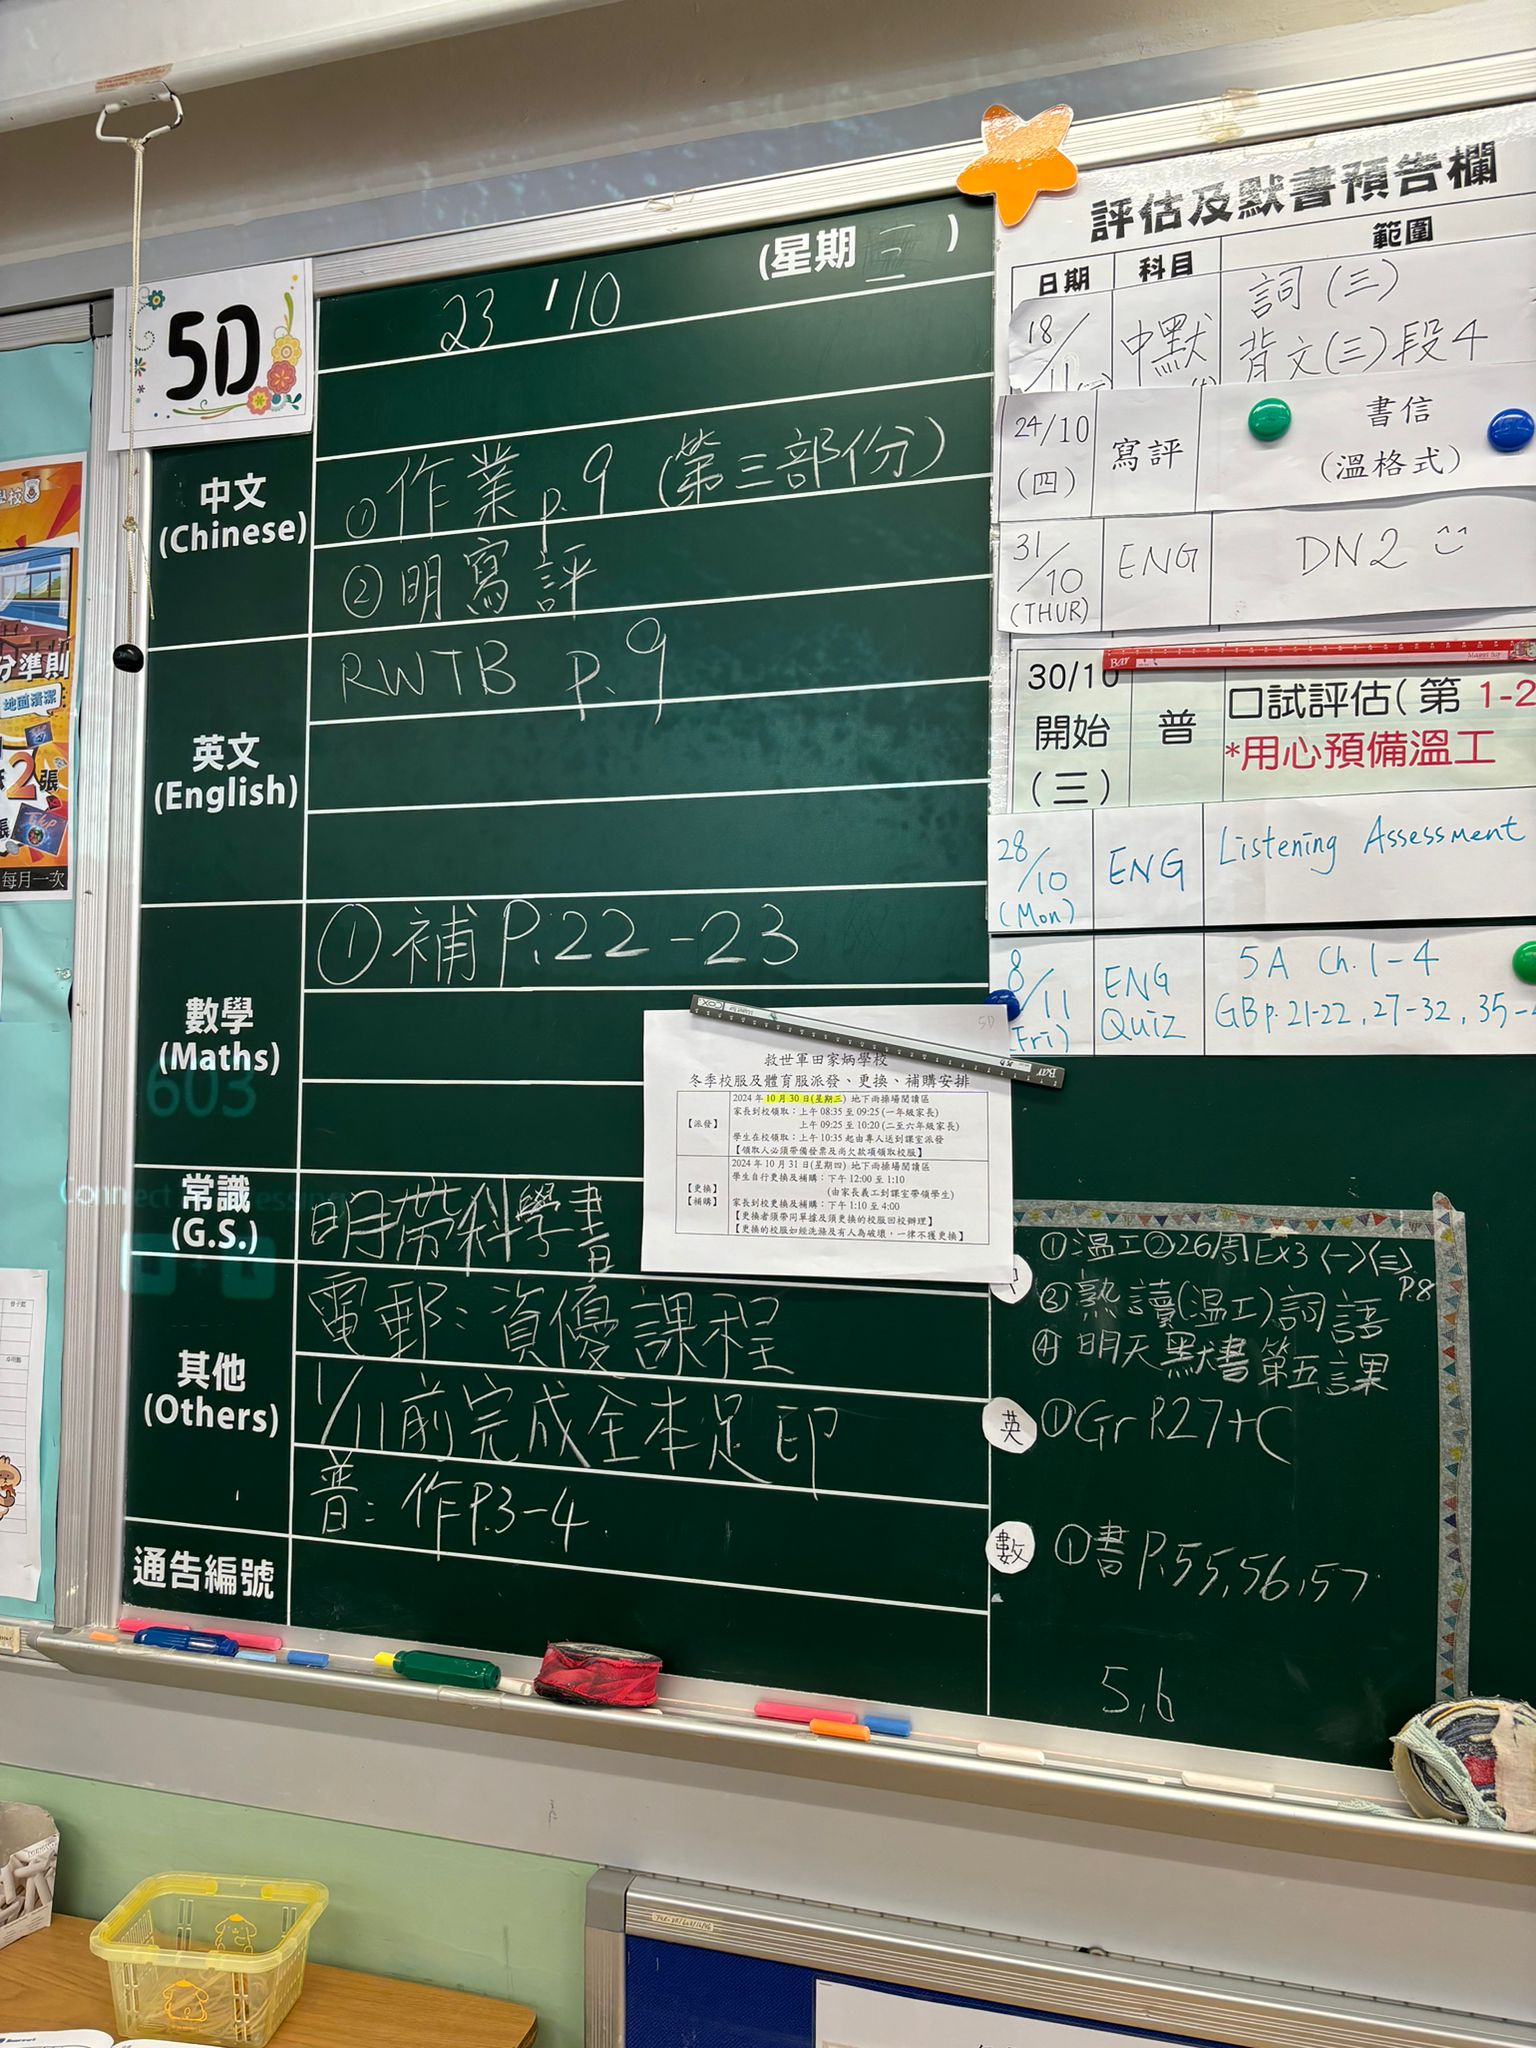 5D
23/10
(星期三)
中文
(Chinese)
①作業 p.9 (第三部份)
②明寫評
英文
(English)
RWTB p.9
數學
(Maths)
①補P.22-23
常識
(G.S.)
明帶科學書
其他
(Others)
電郵:資優課程
1/11前完成全本足印
普:作P.3-4
通告編號
603
評估及默書預告欄
日期 科目 範圍
18/11 中默 詞(三)
背文(三)段4
24/10 (四) 寫評 書信
(溫格式)
31/10 (THUR) ENG DN2
30/10 開始 (三) 普 口試評估(第 1-2
*用心預備溫工
28/10 (Mon) ENG Listening Assessment
8/11 (Fri) ENG QUIZ 5A Ch.1-4
GB p.21-22, 27-32, 35-
5D
救世軍田家炳學校
冬季校服及體育服派發、更換、補購安排
【派發】
2024 年 10 月 30 日(星期三) 地下雨操場閱讀區
家長到校領取:上午 08:35 至 09:25 (一年級家長)
上午 09:25 至 10:20 (二至六年級家長)
學生在校領取:上午 10:35 起由專人送到課室派發
【領取人必須帶備發票及尚欠款項領取校服】
【更換】
【補購】
2024 年 10 月 31 日(星期四) 地下雨操場閱讀區
學生自行更換及補購:下午 12:00 至 1:10
(由家長義工到課室帶領學生)
家長到校更換及補購:下午 1:10 至 4:00
【更換者須帶同單據及須更換的校服回校辦理】
【更換的校服如經洗滌及有人為破壞,一律不獲更換】
①溫工②26周Ex3〈一〉〈三〉
P.8
③熟讀(溫工)詞語
④明天默書第五課
英 ①Gr P.27+C
數 ①書P.55,56,57
5,6
分準則
地面清潔
2張
每月一次